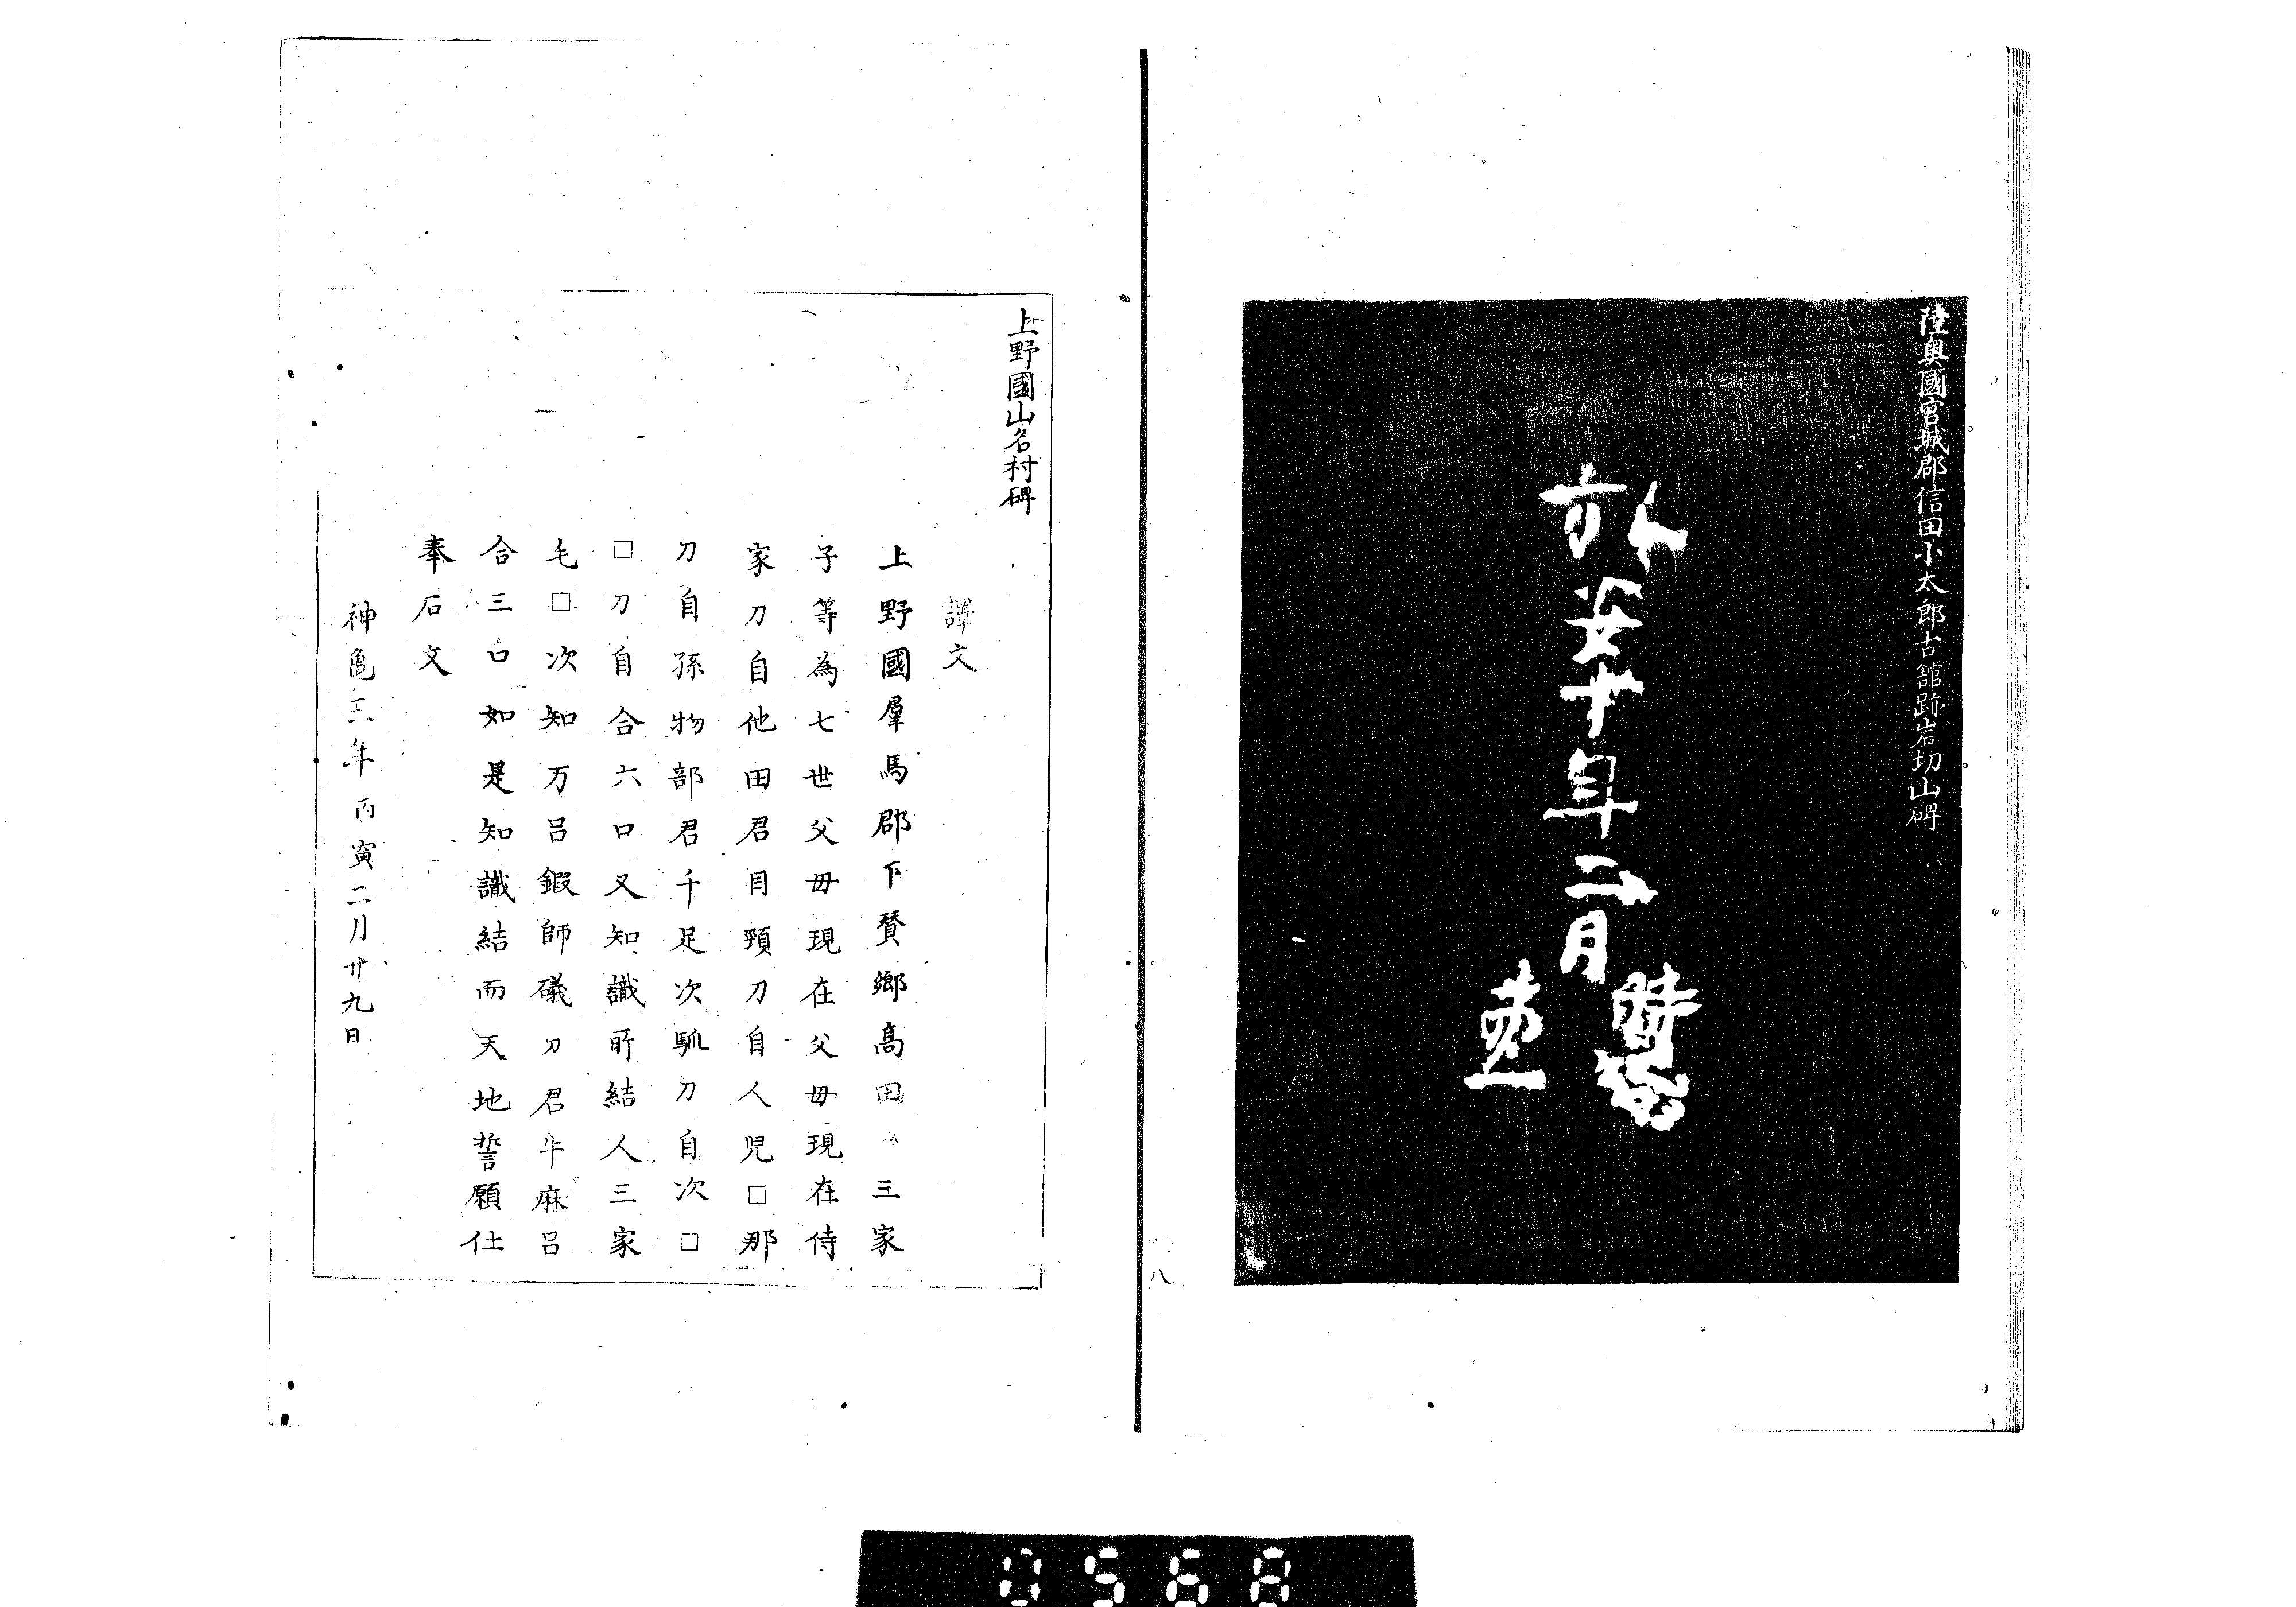 陸奥國宮城郡信田小太郎古舘跡岩切山碑
弘安十年二月
時
八
上野國山名村碑
譯文
上野國羣馬郡下賛鄉髙田 三家
子等為七世父母現在父母現在侍
家刀自他田君目頬刀自人児□那
刀自孫物部君千足次馴刀自次□
□刀自合六口又知識所結人三家
毛□次知万呂鍜師礒刀君牛麻呂
合三口如是知識結而天地誓願仕
奉石文
神亀三年丙寅二月廿九日
0568